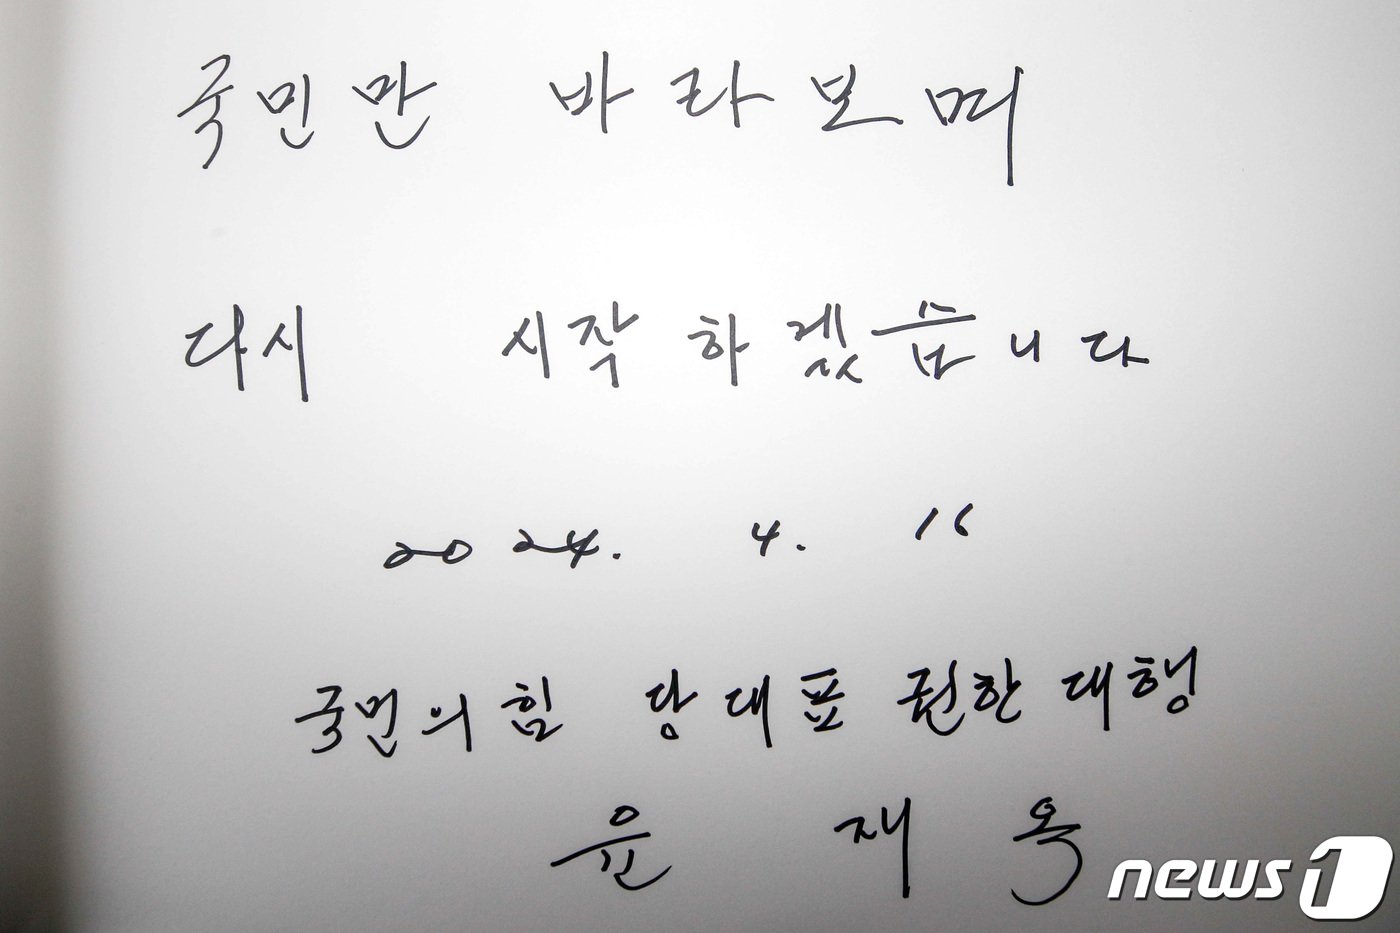 국민만 바라보며
다시 시작하겠습니다
2024. 4. 16
국민의힘 당대표 권한대행
윤 재 옥
news1